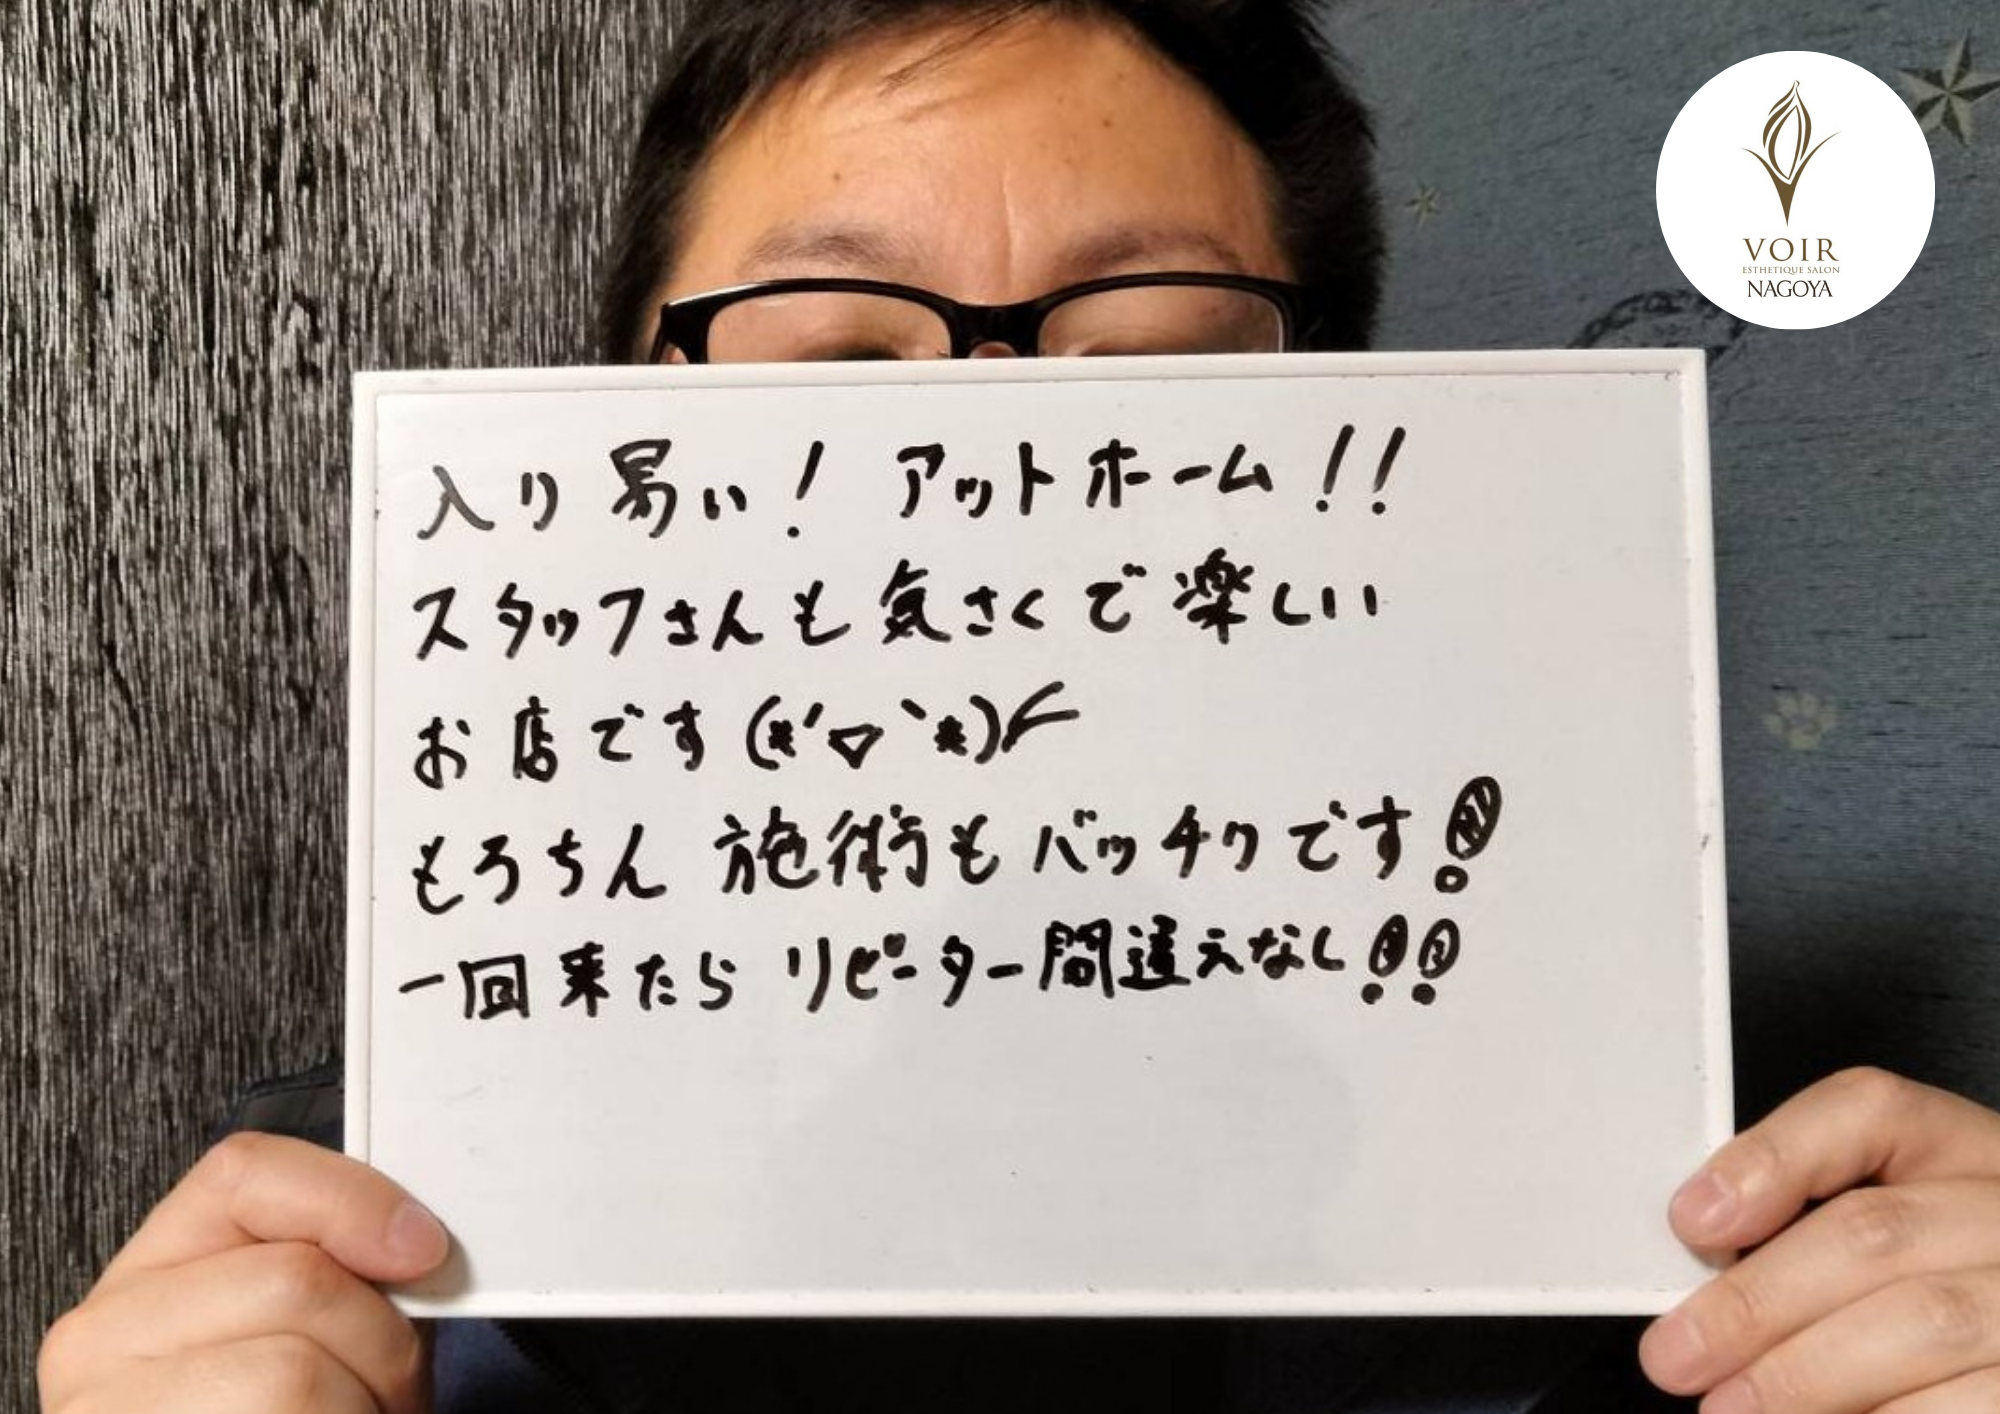 入り易い! アットホーム!!
スタッフさんも気さくで楽しい
お店です(*´▽`*)ノ
もろちん 施術もバッチリです!
一回来たらリピーター間違えなし!!
VOIR
ESTHETIQUE SALON
NAGOYA